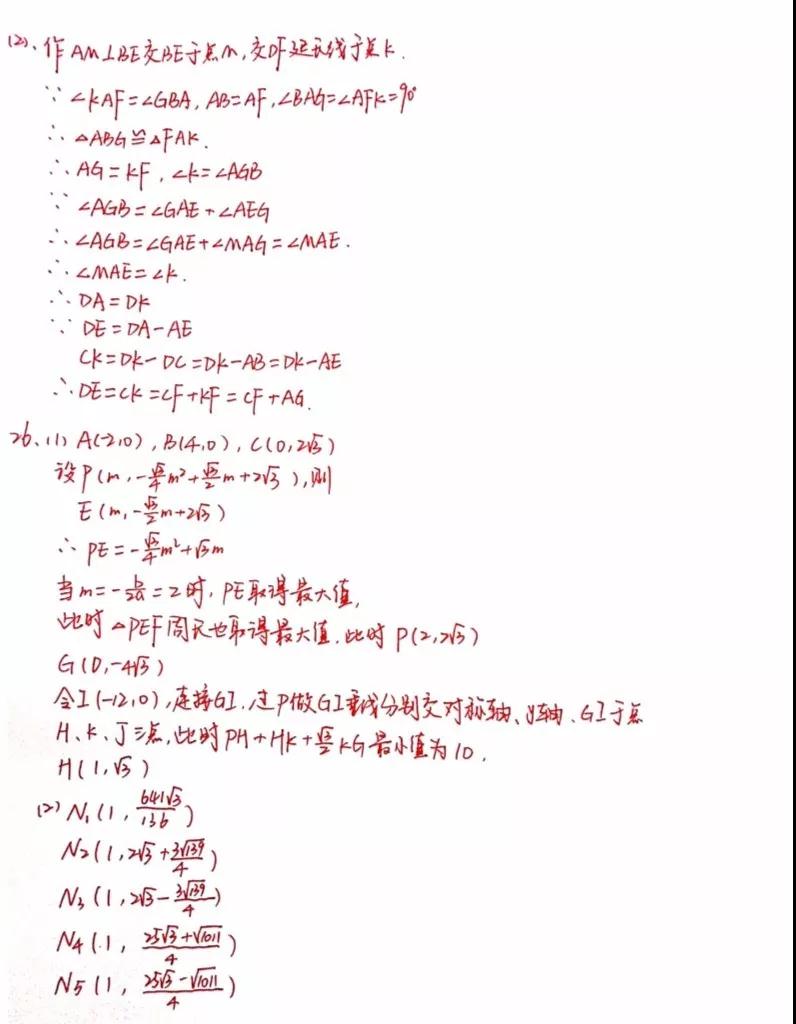 (2)、作AM⊥BE交BE于点M,交DF延长线于点K.
∵ ∠KAF=∠GBA, AB=AF, ∠BAG=∠AFK=90°
∴ △ABG≌△FAK.
∴ AG=KF, ∠K=∠AGB
∵ ∠AGB=∠GAE+∠AEG
∴ ∠AGB=∠GAE+∠MAG=∠MAE.
∴ ∠MAE=∠K.
∴ DA=DK
∵ DE=DA-AE
CK=DK-DC=DK-AB=DK-AE
∴ DE=CK=CF+KF=CF+AG.
26、(1) A(-2,0), B(4,0), C(0,2√3)
设P(m, -√3/4m²+√3/2m+2√3),则
E(m,-√3/2m+2√3)
∴ PE=-√3/4m²+√3m
当m=-b/2a=2时, PE取得最大值,
此时△PEF周长也取得最大值.此时P(2,2√3)
G(0,-4√3)
令I(-12,0),连接GI,过P做GI垂线分别交对称轴、y轴、GI于点
H、K、J三点,此时PH+HK+√3/2KG最小值为10.
H(1,√3)
(2) N₁(1, 641√3/136)
N₂(1,2√3+3√139/4)
N₃(1,2√3-3√139/4)
N₄(1, 25√3+√1011/4)
N₅(1, 25√3-√1011/4)